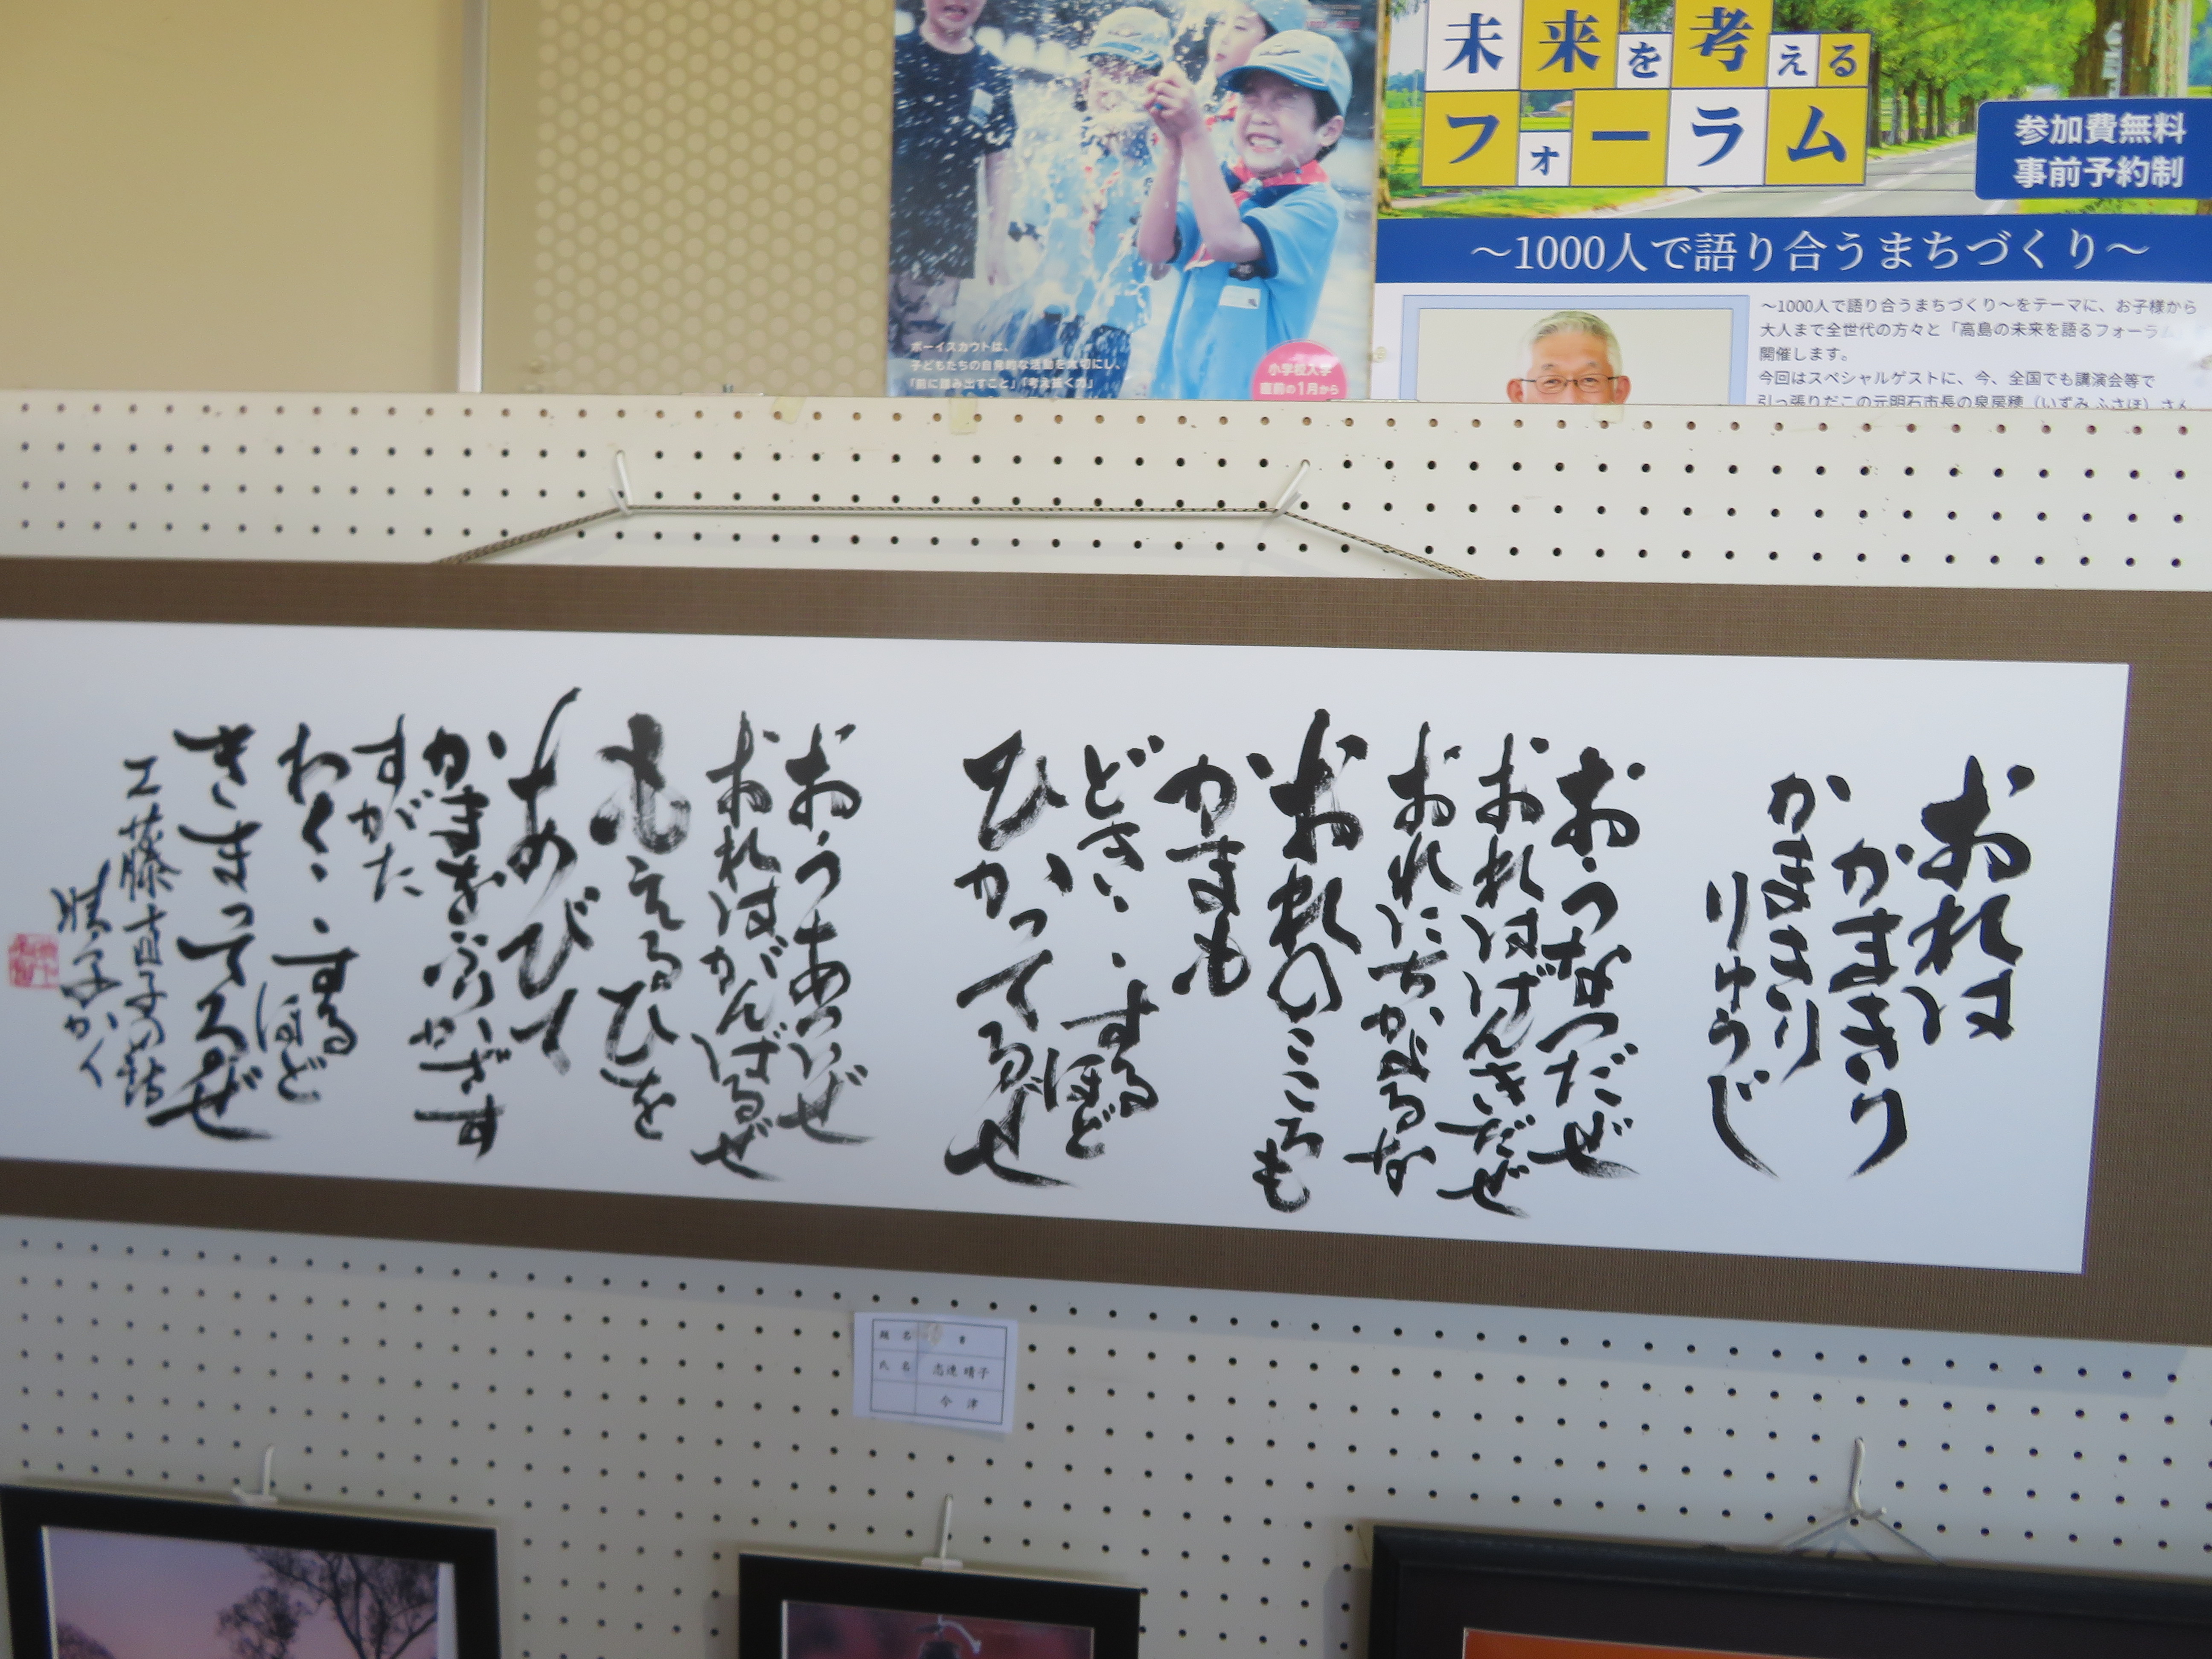 未来を考える
フォーラム
参加費無料
事前予約制
～1000人で語り合うまちづくり～
～1000人で語り合うまちづくり～をテーマに、お子様から
大人まで全世代の方々と「高島の未来を語るフォーラム」を
開催します。
今回はスペシャルゲストに、今、全国でも講演会等で
引っ張りだこの元明石市長の泉房穂（いずみ ふさほ）さん
ボーイスカウトは、
子どもたちの自発的な活動を大切にし、
「前に踏み出すこと」「考え抜く力」
小学校入学
直前の1月から
おれは
かまきり
かまきり
りゅうじ
おうなつだぜ
おれはげんきだぜ
おれにちかよるな
おれのこころも
かまも
どきどきするほど
ひかってるぜ
おうあついぜ
おれはがんばるぜ
もえるひを
あびて
かまをふりかざす
すがた
わくわくするほど
きまってるぜ
工藤直子の詩
晴子かく
題名 書
氏名 志連 晴子
今津